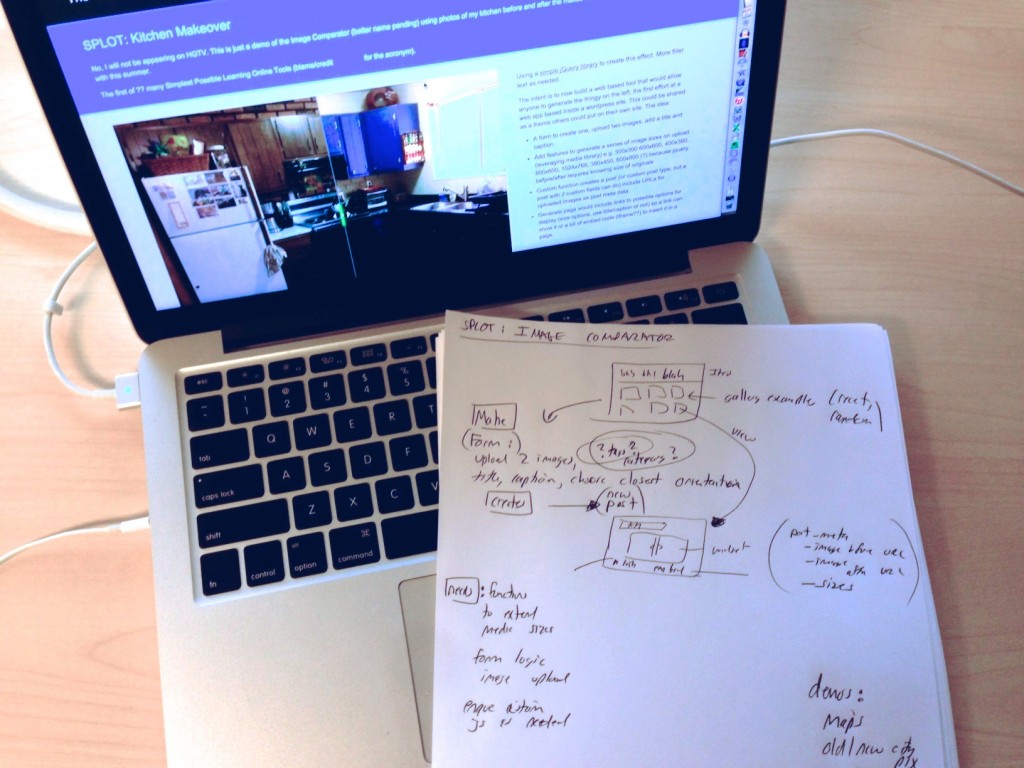 SPLOT: Kitchen Makeover
No, I will not be appearing on HGTV. This is just a demo of the Image Comparator (better name pending) using photos of my kitchen before and after the
with this summer.
The first of ?? many Simplest Possible Learning Online Tools
for the acronym).
Using a simple jQuery library to create this effect. More filler
text as needed.
The intent is to now build a web based tool that would allow
anyone to generate the thingy on the left, the first effort at a
web app based inside a wordpress site. This could be shared
as a theme others could put on their own site. The idea
A form to create one, upload two images, add a title and
caption.
Add features to generate a series of image sizes on upload
(leveraging media library) e.g. 300x300 600x600, 400x300,
800x600,
before/after requires knowing size of originals
Custom function creates a post (or custom post type, but a
post with 2 custom fields can do) include URLs for
uploaded images as post meta data
Generate page would include links to possible options for
display (size options, use title/caption or not) so a link can
show it or a bit of embed code (iframe??) to insert it in a
page.
esc
! 1
@ 2
# 3
$ 4
% 5
tab
Q W E R T
caps lock
A S D F
shift
Z X C V
fn
control
alt option
⌘ command
SPLOT: IMAGE COMPARATOR
blah blah Intro
gallery examples
Make
view
(Form:
upload 2 images,
title, caption, choose closest orientation
create
new
post
post-meta
- image before URL
- image after URL
- sizes
need: function
to extend
media sizes
form logic
image upload
js
demos:
Maps
old/new city
pix